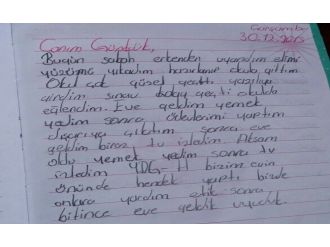 Çarşamba
30.12.2015
Canım Günlük,
Bugün sabah erkenden uyandım elimi
yüzümü yıkadım hazırlanıp okula gittim
Okul çok güzel geçti yazılıya
girdim sınav kolay geçti okulda
eğlendim. Eve geldim yemek
yedim sonra ödevlerimi yaptım
dışarıya çıktım sonra eve
geldim biraz tv izledim. Akşam
oldu yemek yedim sonra tv
izledim YDG-H bizim evin
önünde hendek yaptı bizde
onlara yardım ettik sonra
bitince eve geldik uyuduk.